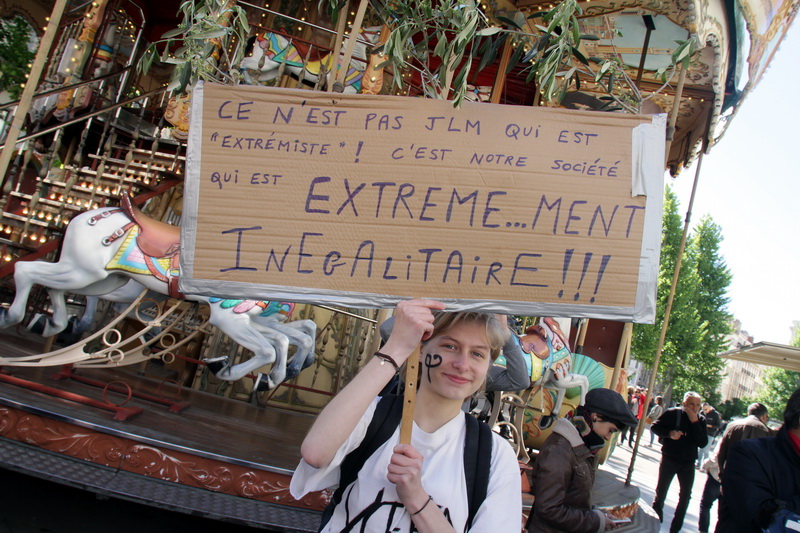 CE N'EST PAS JLM QUI EST
"EXTRÉMISTE"! C'EST NOTRE SOCIÉTÉ
QUI EST EXTREME...MENT
INEGALITAIRE!!!
φ